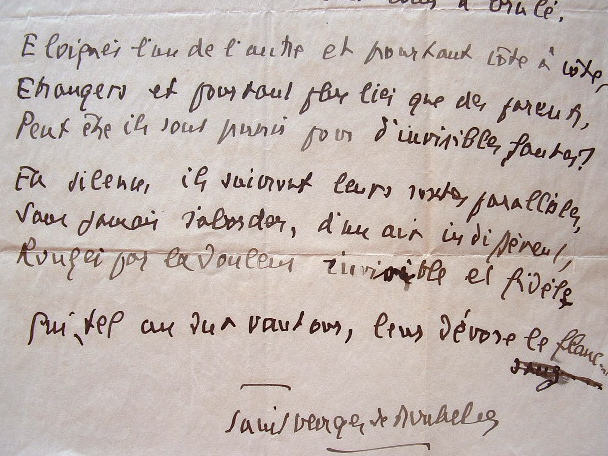 à brûlé.
Eloignés l'un de l'autre et pourtant côte à côte,
Etrangers et pourtant plus liés que des parents,
Peut être ils sont punis pour d'invisibles fautes?
En silence, ils suivront leurs routes parallèles,
Sans jamais s'aborder, d'un air indifférent,
Rongés par la douleur invisible et fidèle
Qui, tel un dur vautour, leur dévore le flanc
Saint Georges de Bouhélier